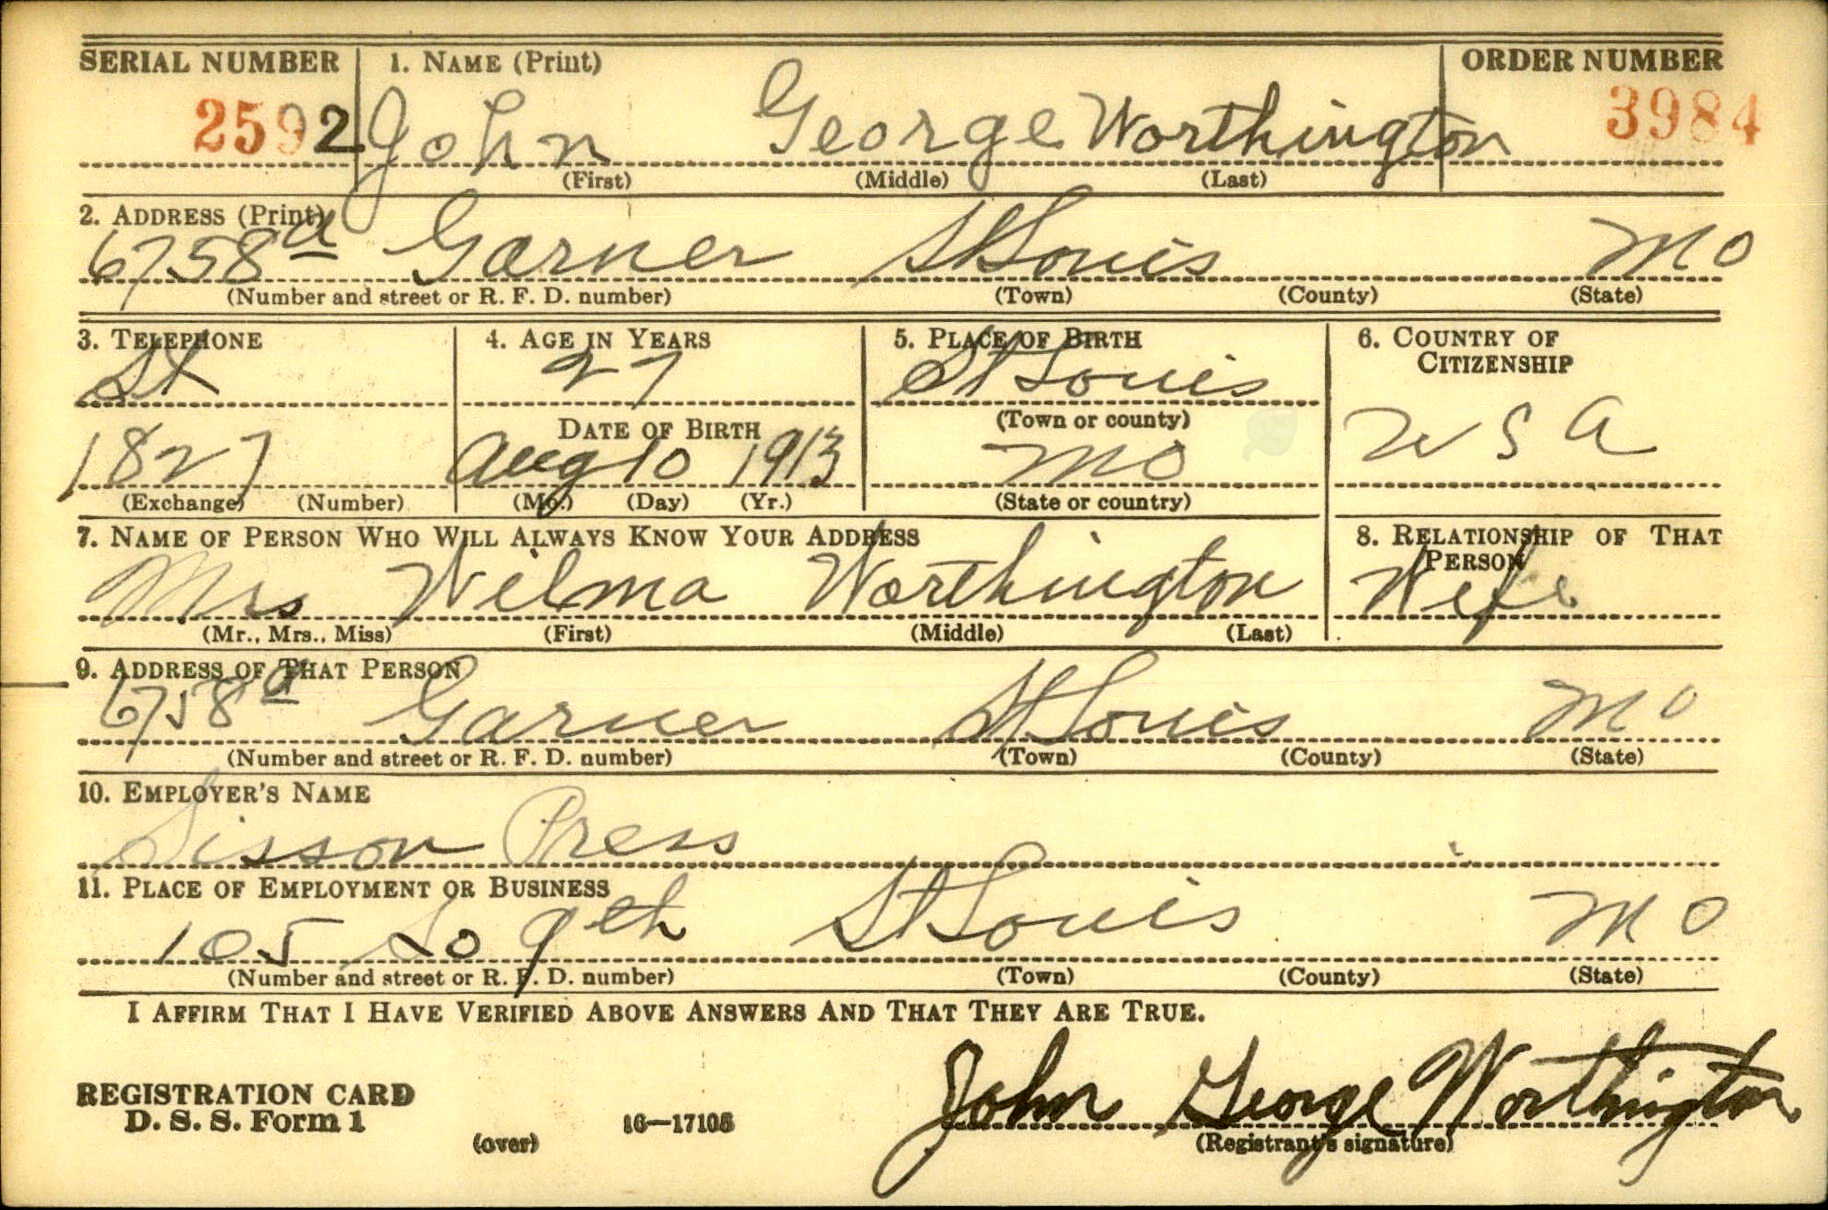 SERIAL NUMBER 1. NAME (Print) ORDER NUMBER
2592 John George Worthington 3984
(First) (Middle) (Last)
2. ADDRESS (Print)
6758a Garner St Louis Mo
(Number and street or R. F. D. number) (Town) (County) (State)
3. TELEPHONE 4. AGE IN YEARS 5. PLACE OF BIRTH 6. COUNTRY OF
CITIZENSHIP
St 27 St Louis
(Town or county)
DATE OF BIRTH
1827 Aug 10 1913 Mo U S A
(Exchange) (Number) (Mo.) (Day) (Yr.) (State or country)
7. NAME OF PERSON WHO WILL ALWAYS KNOW YOUR ADDRESS 8. RELATIONSHIP OF THAT
PERSON
Mrs Wilma Worthington Wife
(Mr., Mrs., Miss) (First) (Middle) (Last)
9. ADDRESS OF THAT PERSON
6758a Garner St Louis Mo
(Number and street or R. F. D. number) (Town) (County) (State)
10. EMPLOYER'S NAME
Sisson Press
11. PLACE OF EMPLOYMENT OR BUSINESS
105 So 9th St Louis Mo
(Number and street or R. F. D. number) (Town) (County) (State)
I AFFIRM THAT I HAVE VERIFIED ABOVE ANSWERS AND THAT THEY ARE TRUE.
John George Worthington
REGISTRATION CARD
D. S. S. Form 1 16—17105
(over) (Registrant's signature)